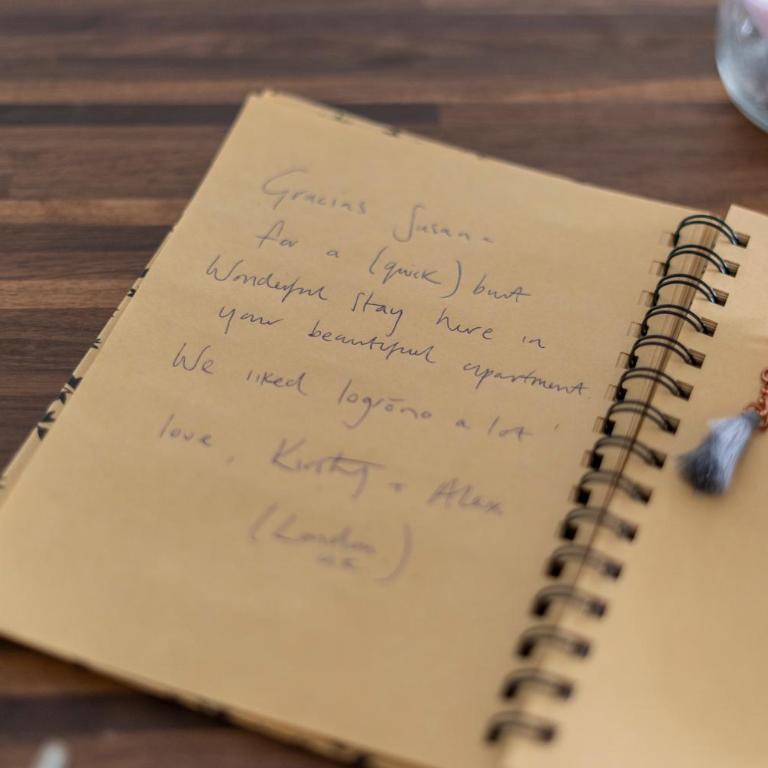 Gracias Susana
for a (quick) but
Wonderful stay here in
your beautiful apartment.
We liked logroño a lot
love, Kirsty + Alex
(London)